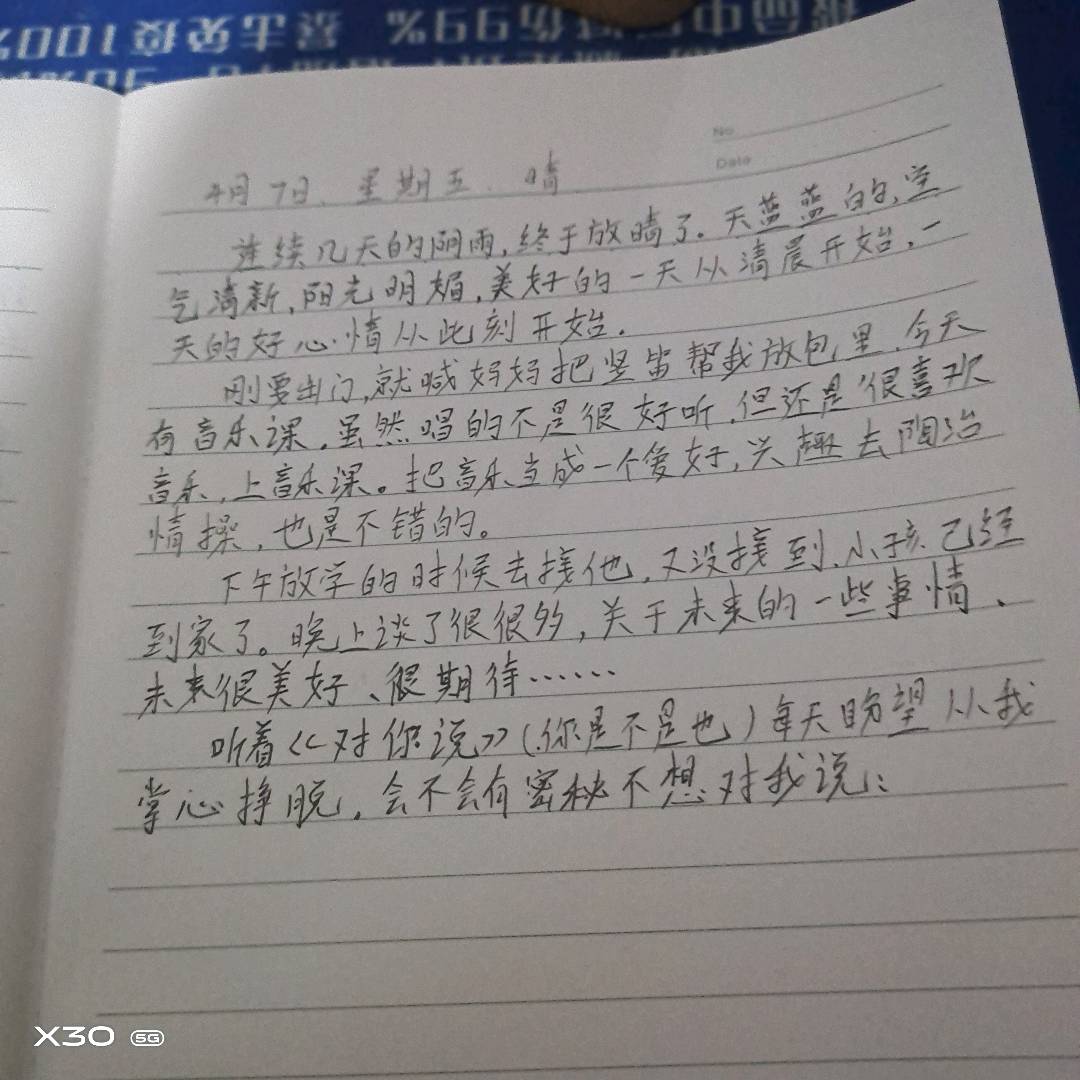 最高中口减伤99% 暴击免疫100%
No
Date
4月7日. 星期五. 晴
连续几天的阴雨,终于放晴了。天蓝蓝的,空
气清新,阳光明媚,美好的一天从清晨开始,一
天的好心情从此刻开始.
刚要出门,就喊妈妈把竖笛帮我放包里,今天
有音乐课,虽然唱的不是很好听,但还是很喜欢
音乐,上音乐课。把音乐当成一个爱好,兴趣去陶冶
情操,也是不错的。
下午放学的时候去接他,又没接到,小孩已经
到家了。晚上谈了很很多,关于未来的一些事情、
未来很美好、很期待……
听着《对你说》(你是不是也)每天盼望从我
掌心挣脱,会不会有密秘不想对我说:
X30 5G